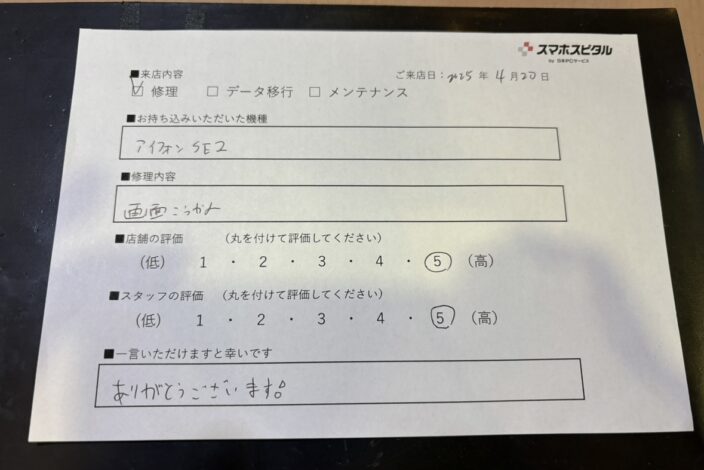 スマホスピタル
by 日本PCサービス
■来店内容 ご来店日：2025年4月20日
☑ 修理 □ データ移行 □ メンテナンス
■お持ち込みいただいた機種
アイフォンSE2
■修理内容
画面こうかん
■店舗の評価 （丸を付けて評価してください）
（低） 1 ・ 2 ・ 3 ・ 4 ・ 5 （高）
■スタッフの評価 （丸を付けて評価してください）
（低） 1 ・ 2 ・ 3 ・ 4 ・ 5 （高）
■一言いただけますと幸いです
ありがとうございます。